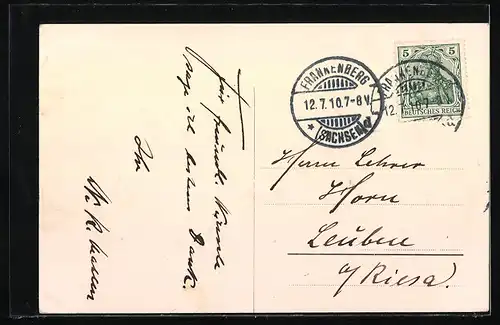 Für freundl. Wünsche
sage ich besten Dank.
Ihr
FRANKENBERG
12.7.10.7-8V.
* (SACHSEN) d
5 5
DEUTSCHES REICH
FRANKENBE
12.7.10.7-8V
Herrn Lehrer
Horn
Leuben
b/Riesa.